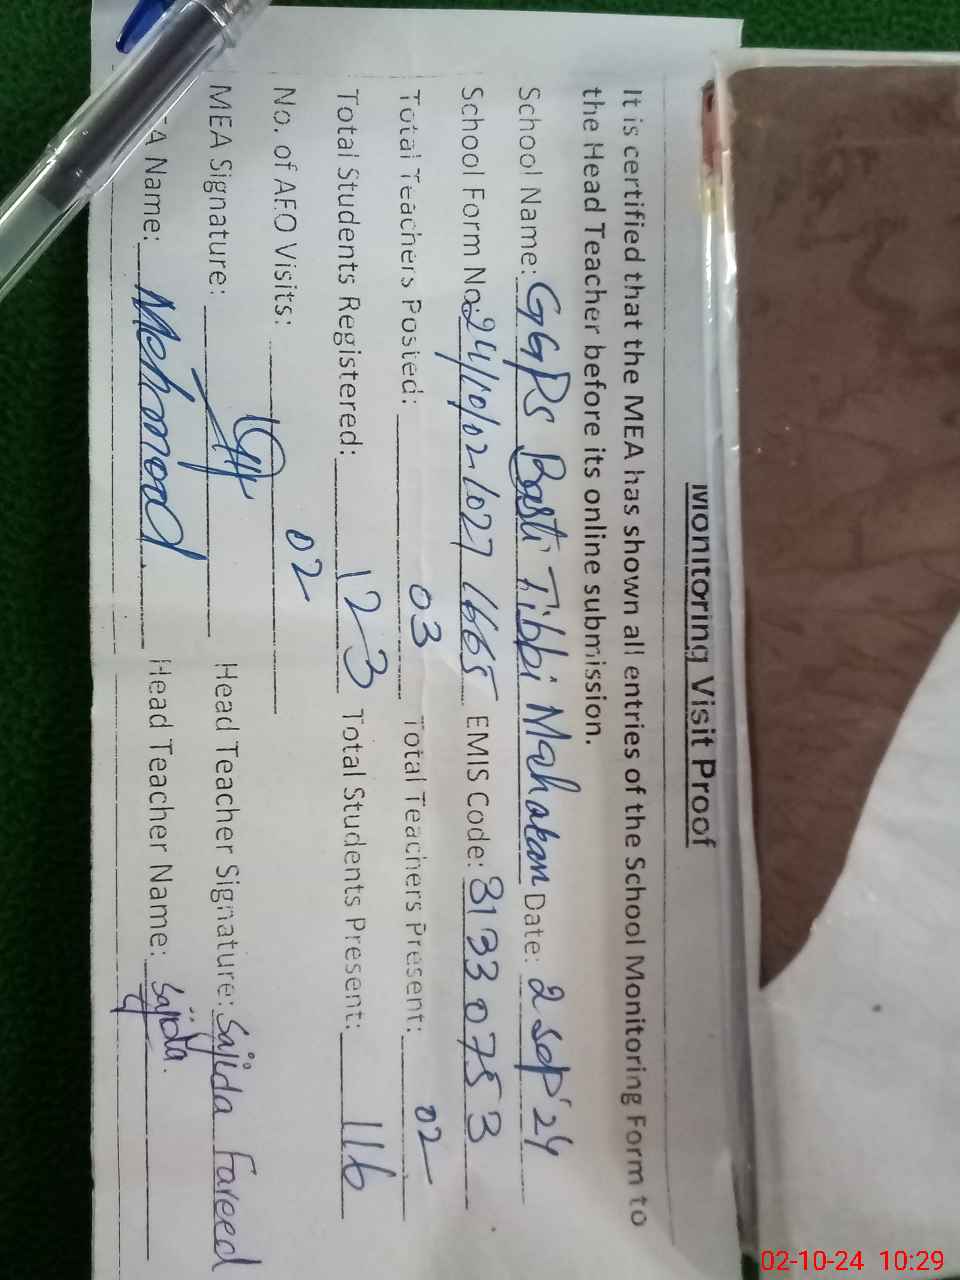 Monitoring Visit Proof
It is certified that the MEA has shown all entries of the School Monitoring Form to
the Head Teacher before its online submission.
School Name: GGPS Basti Tibbi Mahakan Date: 2 Sep'24
School Form No: 24/10/02/027/665 EMIS Code: 31330753
Total Teachers Posted: 03 Total Teachers Present: 02
Total Students Registered: 123 Total Students Present: 116
No. of AEO Visits: 02
MEA Signature: Head Teacher Signature: Sajida Fareed
EA Name: Mehmood Head Teacher Name: Sajida.
02-10-24 10:29